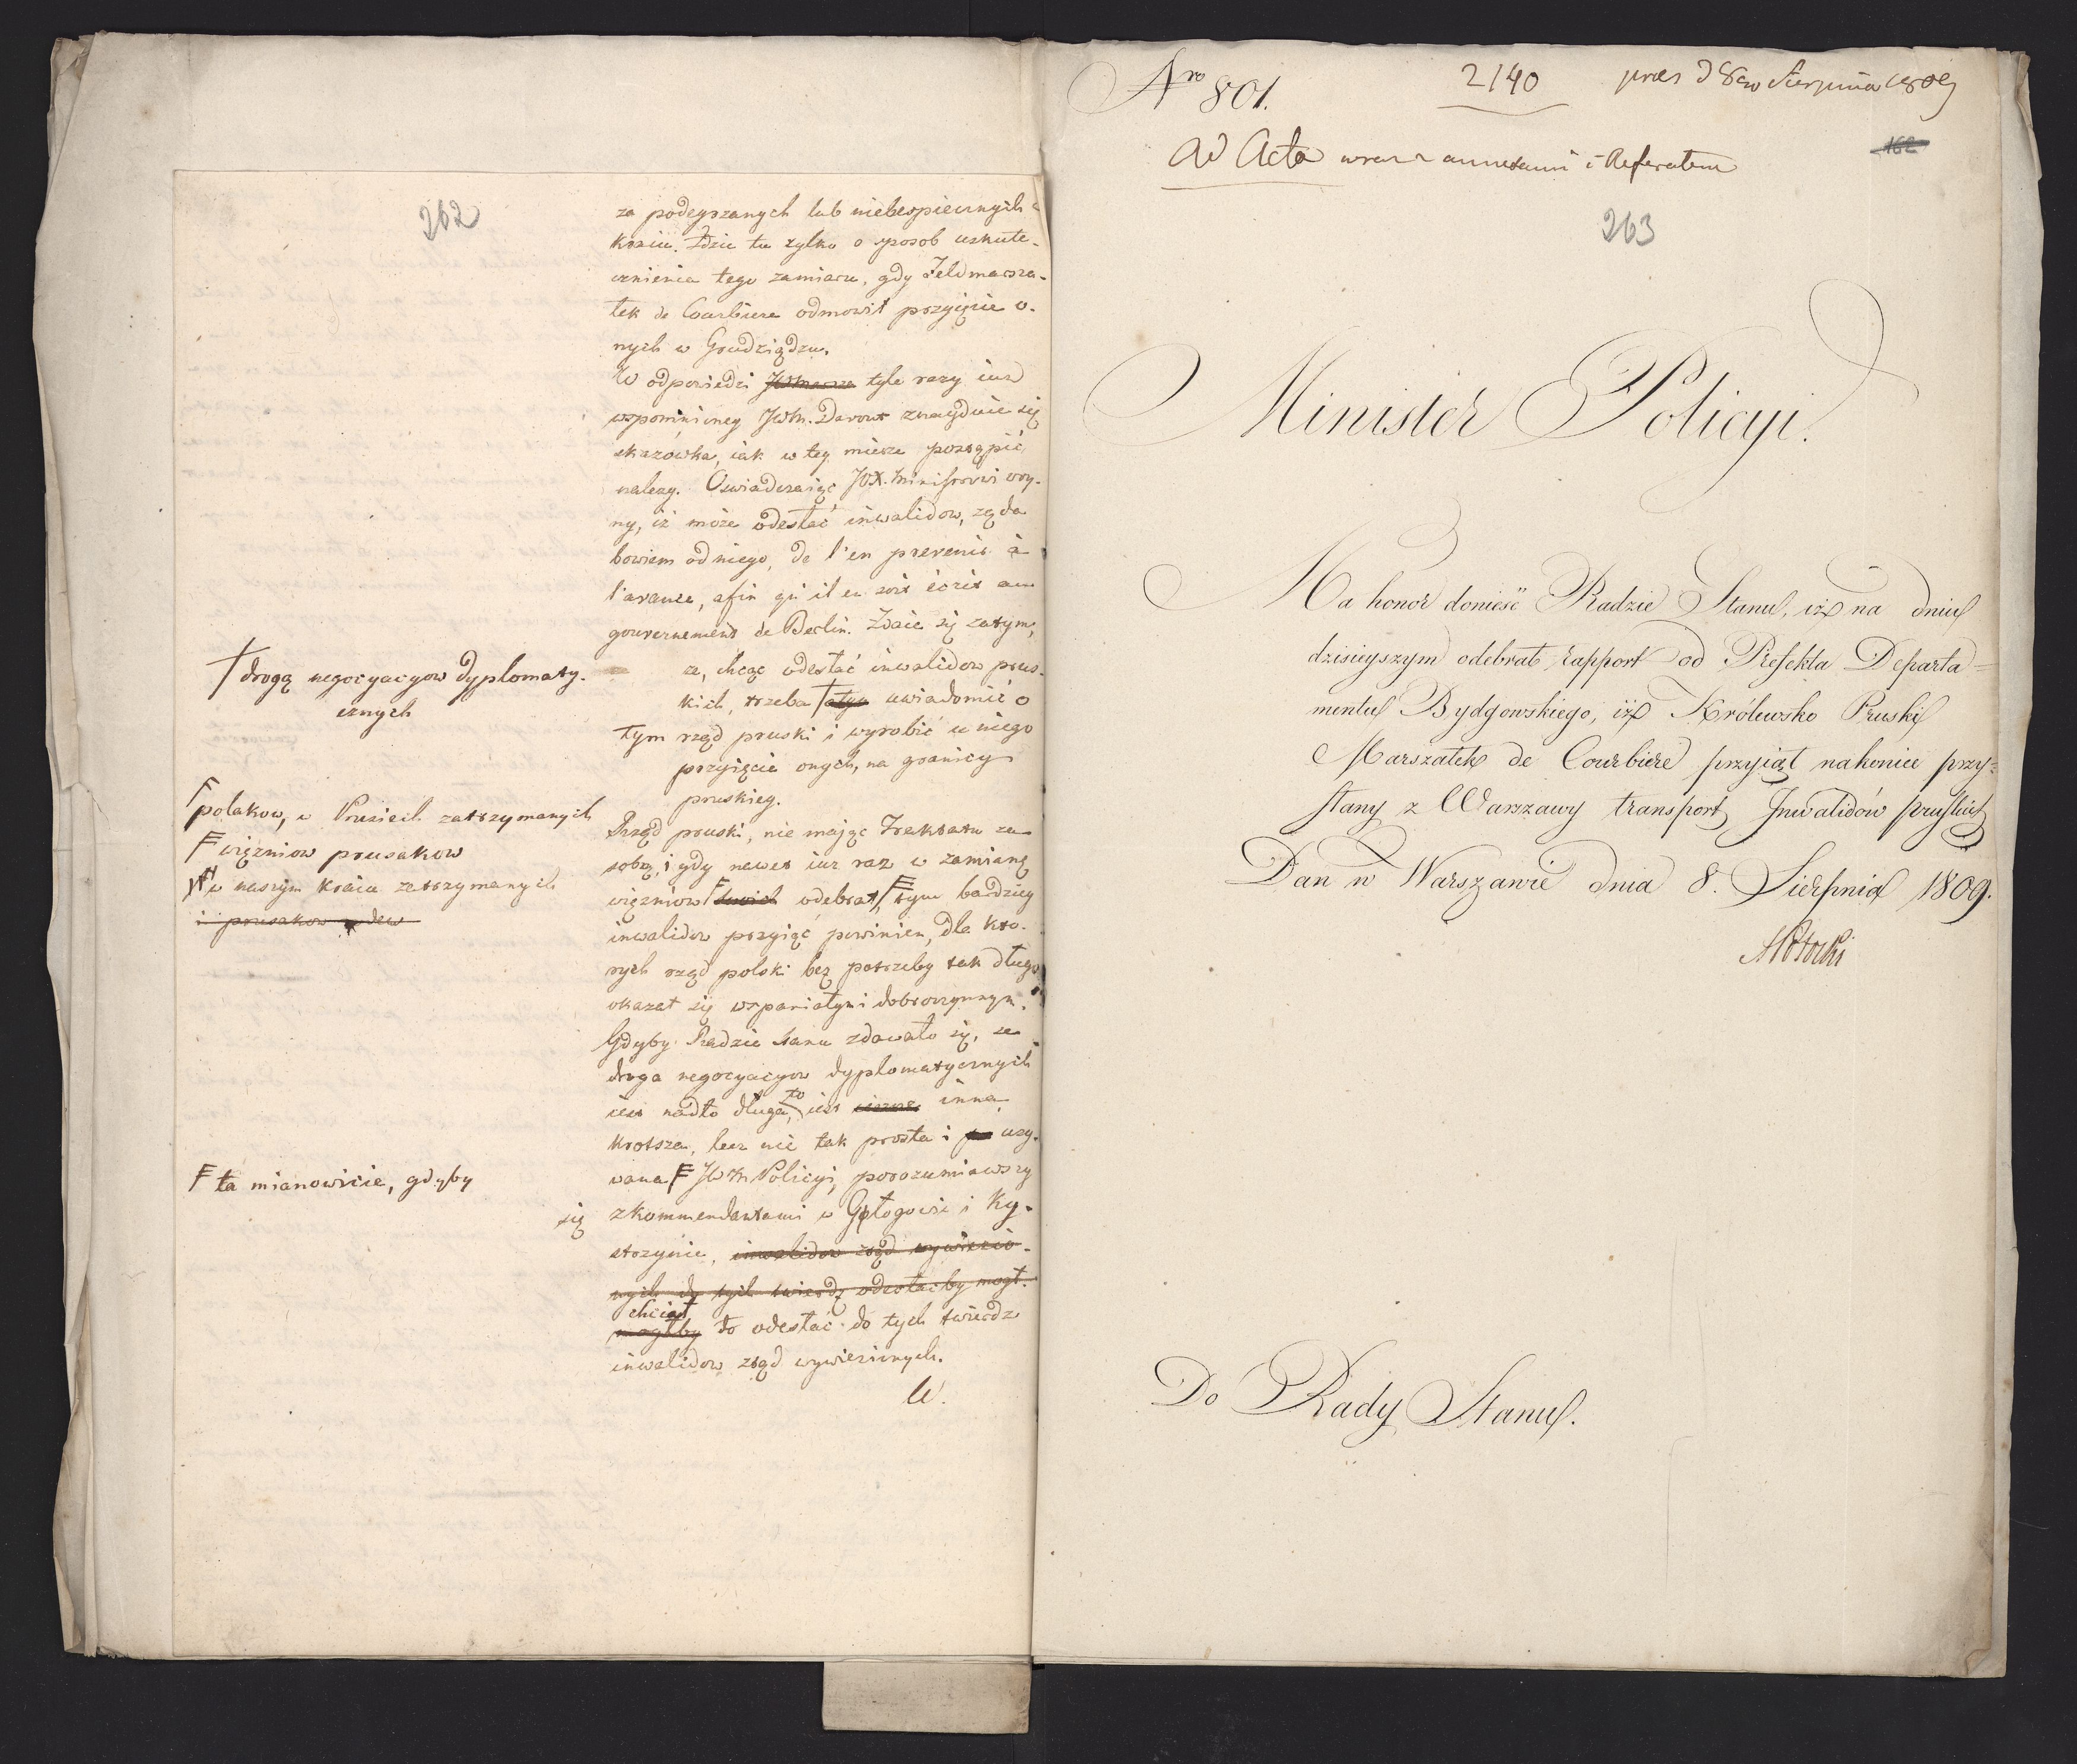 262
za podeyrzanych lub niebespiecznych
Kraiu. Idzie tu tylko o sposob uskute-
cznienia tego zamiaru, gdy Feldmarsza-
łek de Courbiere odmowił przyięcie o-
nych w Grudziądzu.
W odpowiedzi tyle razy iuż
wspomnioney JWM. Davout znayduie się
skazówka, iak w tey mierze postąpić
należy. Oswiadczaiąc JOX. Ministrowi woy-
ny, iż może odesłać inwalidow, żąda
bowiem od niego, de l'en prevenir à
l'avance, afin qu'il en soit écrit au
gouvernement de Berlin. Zdaie się zatym,
że, chcąc odesłać inwalidow prus-
kich, trzeba † uwiadomić o
tym rząd pruski i wyrobić u niego
przyięcie onych, na granicy
pruskiey.
† drogą negocyacyow dyplomaty-
cznych
Rząd pruski, nie mając Traktatu za
sobą, i gdy nawet iuż raz w zamianę
więzniów F swoich odebrał, F tym bardziey
inwalidow przyiąć powinien, dla kto-
rych rząd polski bez potrzeby tak długo
okazał się wspaniałym i dobroczynnym.
F polakow, w Prusiech zatrzymanych
F więzniow prusakow
w naszym kraiu zatrzymanych
i prusakow
Gdyby Radzie Stanu zdawało się, że
droga negocyacyow dyplomatycznych
iest nadto długa, to iest ieszcze inna
krotsza, lecz nie tak prosta i uży-
wana F JWM Policyi, porozumiawszy
się z kommendantami w Głogowie i Ky-
strzynie, inwalidow ztąd wywiezio-
nych do tych twierdz odesłać by mogł.
chciał
mogłby to odesłać do tych twierdz
inwalidow ztąd wywiezionych.
F ta mianowicie, gdyby
Nro 801.
2140
præs d 8go Sierpnia 1809
Ad Acta wraz z annexami i Referatem
162
263
Minister Policyi.
Ma honor donieść Radzie Stanu, iż na dniu
dzisieyszym odebrał rapport od Prefekta Departa-
mentu Bydgowskiego, iż Królewsko Pruski
Marszałek de Courbiere przyiął nakoniec przy-
słany z Warszawy transport Inwalidów pruskich
Dan w Warszawie dnia 8. Sierpnia 1809.
APotocki
Do Rady Stanu.